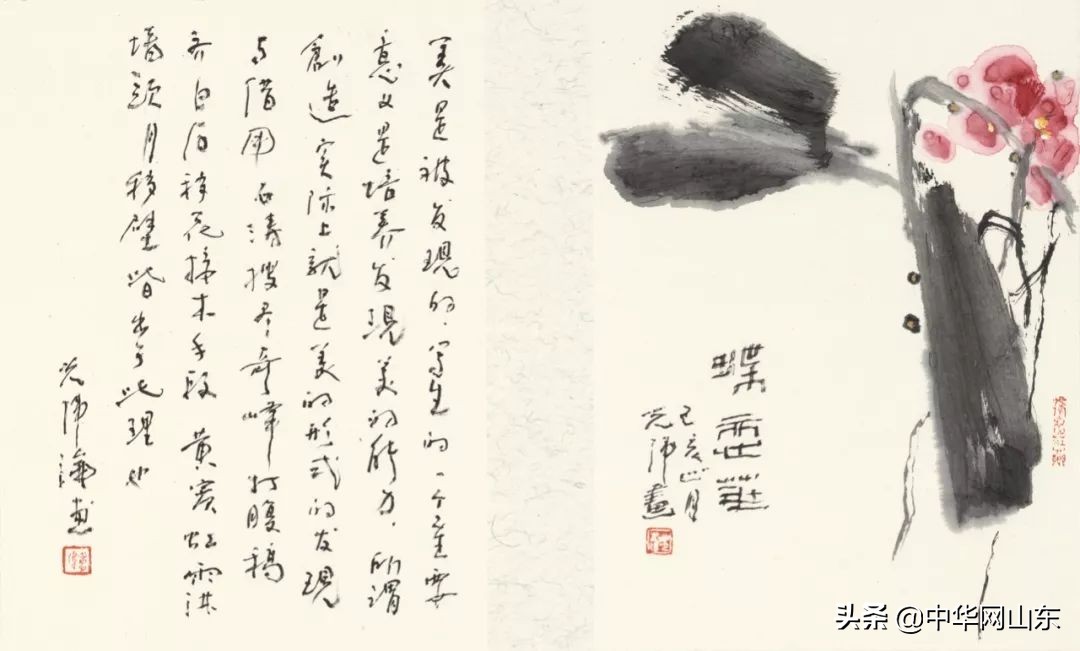 美是被发現的，写生的一个重要
意义是培养发現美的能力，所谓
創造实际上就是美的形式的发現
与借用 石涛搜尽奇峰打腹稿
齐白石移花接木手段 黄宾虹雨淋
墙頭月移壁皆出于此理也
蝶
己亥
头条 @中华网山东